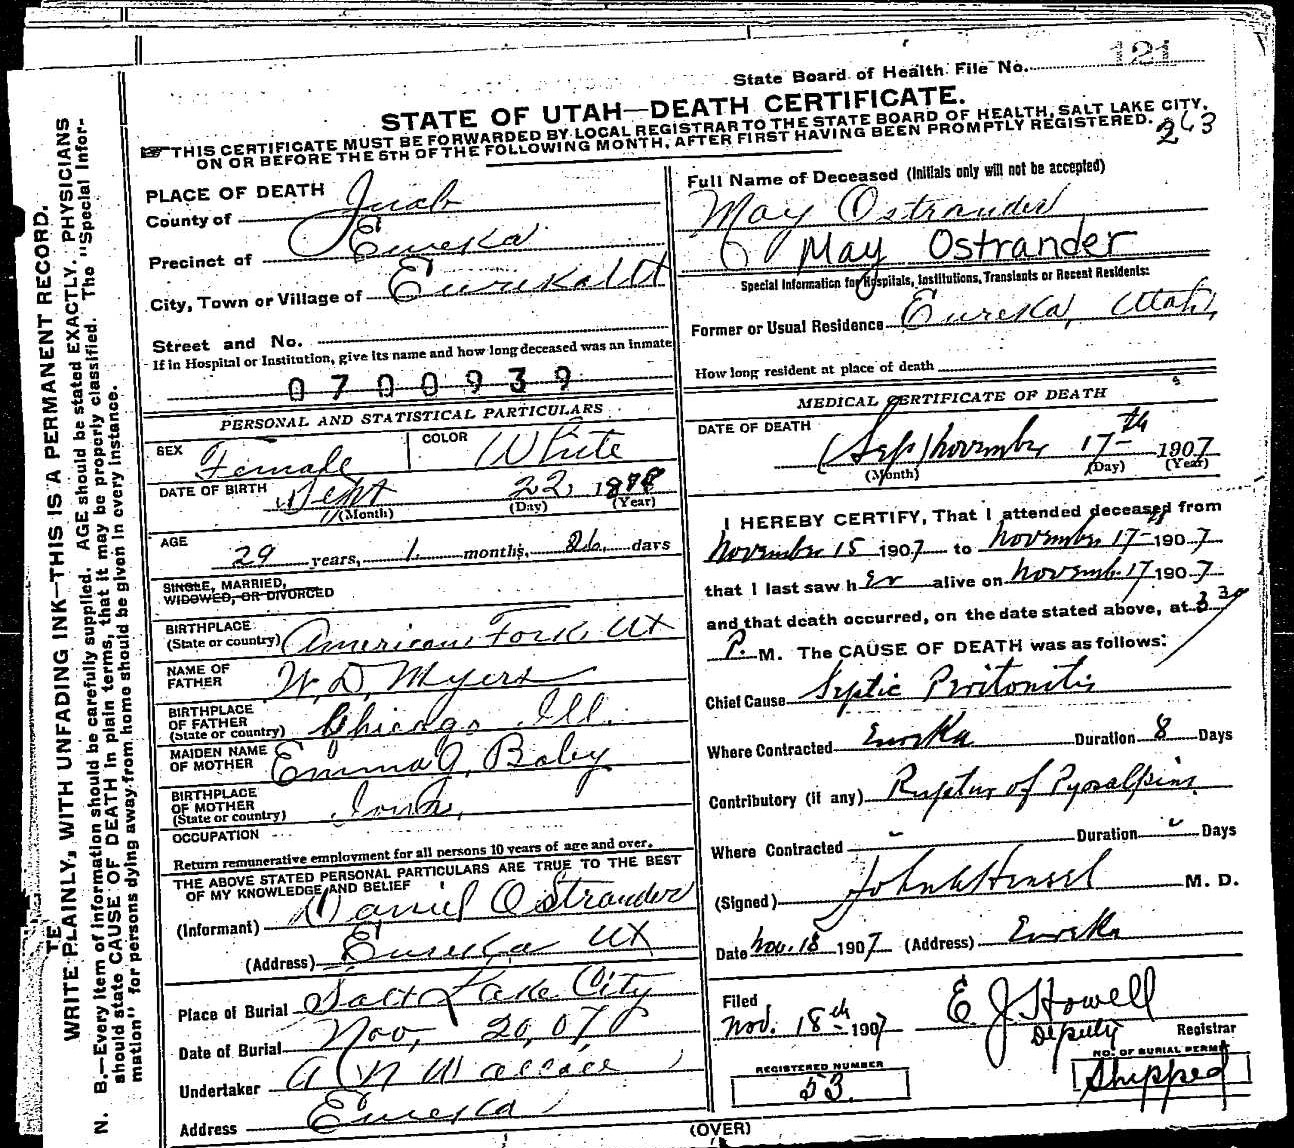 121
State Board of Health File No.
STATE OF UTAH—DEATH CERTIFICATE.
☞ THIS CERTIFICATE MUST BE FORWARDED BY LOCAL REGISTRAR TO THE STATE BOARD OF HEALTH, SALT LAKE CITY,
ON OR BEFORE THE 5TH OF THE FOLLOWING MONTH, AFTER FIRST HAVING BEEN PROMPTLY REGISTERED.
263
PLACE OF DEATH
County of Juab
Precinct of Eureka
City, Town or Village of Eureka Ut
Street and No.
If in Hospital or Institution, give its name and how long deceased was an inmate
0700939
PERSONAL AND STATISTICAL PARTICULARS
SEX Female COLOR White
DATE OF BIRTH Sept 22 1878
(Month) (Day) (Year)
AGE 29 years, 1 months, 26 days
SINGLE, MARRIED,
WIDOWED, OR DIVORCED
BIRTHPLACE
(State or country) American Fork Ut
NAME OF
FATHER W. D. Myers
BIRTHPLACE
OF FATHER
(State or country) Chicago Ill.
MAIDEN NAME
OF MOTHER Emma J. Baby
BIRTHPLACE
OF MOTHER
(State or country) Iowa
OCCUPATION
Return remunerative employment for all persons 10 years of age and over.
THE ABOVE STATED PERSONAL PARTICULARS ARE TRUE TO THE BEST
OF MY KNOWLEDGE AND BELIEF
(Informant) Daniel Ostrander
(Address) Eureka Ut
Place of Burial Salt Lake City
Date of Burial Nov, 20, 07
Undertaker A N Wallace
Address Eureka
Full Name of Deceased (Initials only will not be accepted)
May Ostrander
May Ostrander
Special Information for Hospitals, Institutions, Transients or Recent Residents:
Former or Usual Residence Eureka, Utah,
How long resident at place of death
MEDICAL CERTIFICATE OF DEATH
DATE OF DEATH
(Sep) November 17th 1907
(Month) (Day) (Year)
I HEREBY CERTIFY, That I attended deceased from
November 15 1907 to November 17 1907
that I last saw her alive on Novemb. 17 1907
and that death occurred, on the date stated above, at 3 30
P. M. The CAUSE OF DEATH was as follows:
Chief Cause Septic Peritonitis
Where Contracted Eureka Duration 8 Days
Contributory (if any) Ruptur of Pyosalpinx
Where Contracted - Duration - Days
(Signed) John Hensel M. D.
Date Nov. 18 1907 (Address) Eureka
Filed
Nov. 18th 1907 E. J. Howell
Deputy Registrar
REGISTERED NUMBER
53.
NO. OF BURIAL PERMIT
Shipped
(OVER)
TE
WRITE PLAINLY, WITH UNFADING INK—THIS IS A PERMANENT RECORD.
N. B.—Every item of information should be carefully supplied. AGE should be stated EXACTLY. PHYSICIANS
should state CAUSE OF DEATH in plain terms, that it may be properly classified. The "Special Infor-
mation" for persons dying away from home should be given in every instance.